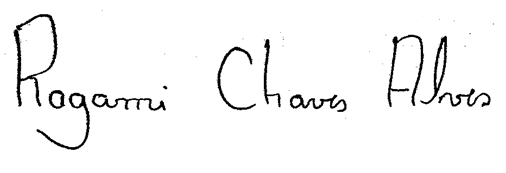 Ragami Chaves Alves